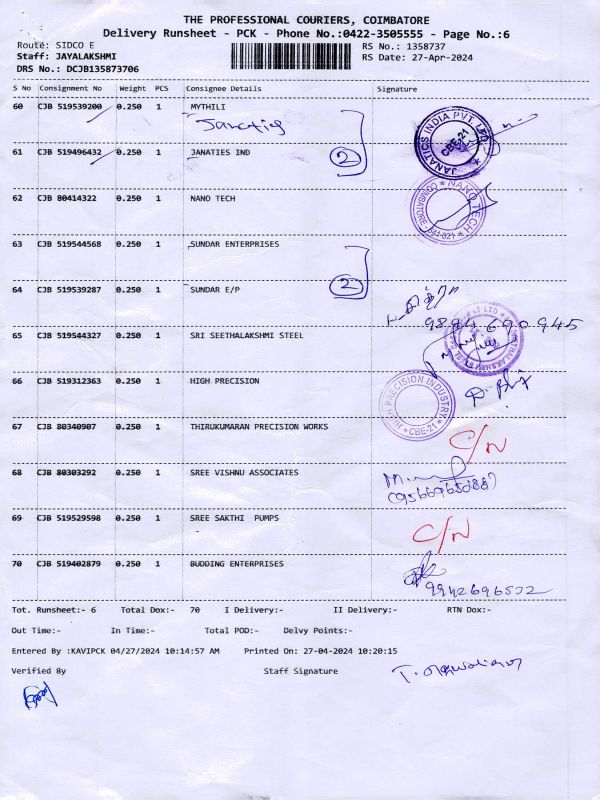 THE PROFESSIONAL COURIERS, COIMBATORE
Delivery Runsheet - PCK - Phone No.:0422-3505555 - Page No.:6
Route: SIDCO E RS No.: 1358737
Staff: JAYALAKSHMI RS Date: 27-Apr-2024
DRS No.: DCJB135873706
S No Consignment No Weight PCS Consignee Details Signature
60 CJB 519539200 0.250 1 MYTHILI
Janatics
JANATICS INDIA PVT. LTD. CBE-21
61 CJB 519496432 0.250 1 JANATIES IND 2
62 CJB 80414322 0.250 1 NANO TECH
NANO TECH COIMBATORE 641-021
63 CJB 519544568 0.250 1 SUNDAR ENTERPRISES
64 CJB 519539287 0.250 1 SUNDAR E/P 2
9894690945
65 CJB 519544327 0.250 1 SRI SEETHALAKSHMI STEEL
66 CJB 519312363 0.250 1 HIGH PRECISION
PRECISION INDUSTRY CBE-21
67 CJB 80340907 0.250 1 THIRUKUMARAN PRECISION WORKS C/N
68 CJB 80303292 0.250 1 SREE VISHNU ASSOCIATES
69 CJB 519529598 0.250 1 SREE SAKTHI PUMPS C/N
70 CJB 519402879 0.250 1 BUDDING ENTERPRISES
9942696532
Tot. Runsheet:- 6 Total Dox:- 70 I Delivery:- II Delivery:- RTN Dox:-
Out Time:- In Time:- Total POD:- Delvy Points:-
Entered By :KAVIPCK 04/27/2024 10:14:57 AM Printed On: 27-04-2024 10:20:15
Verified By Staff Signature